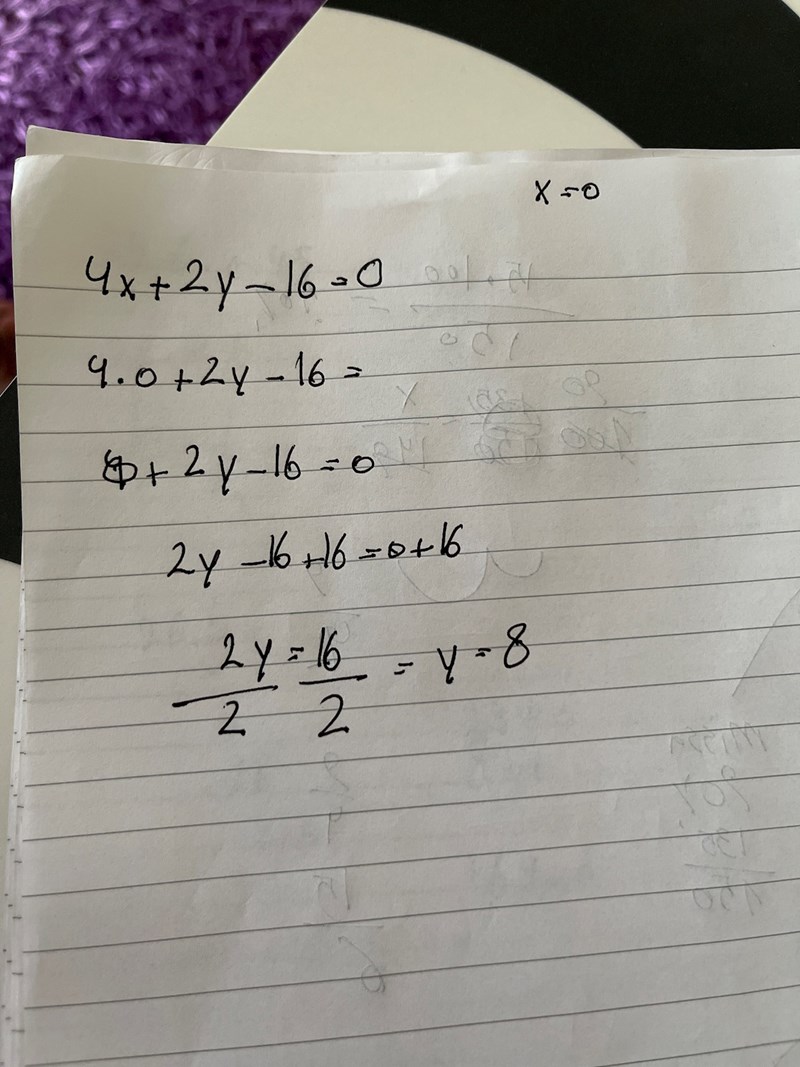 x=0
4x+2y-16=0
4.0+2y-16=
0+2y-16=0
2y-16+16=0+16
2y=16 = y=8
2 2